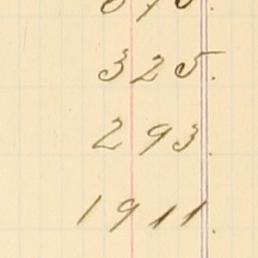 325.
293.
1911.